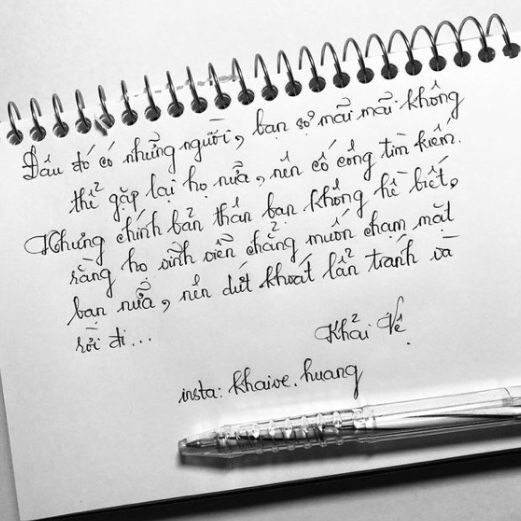 Đâu đó có những người, bạn sợ mãi mãi không
thể gặp lại họ nữa, nên cố công tìm kiếm.
Nhưng chính bản thân bạn không hề biết,
rằng họ vĩnh viễn chẳng muốn chạm mặt
bạn nữa, nên dứt khoát lẩn tránh và
rời đi...
Khải Vệ.
insta: khaive.huang